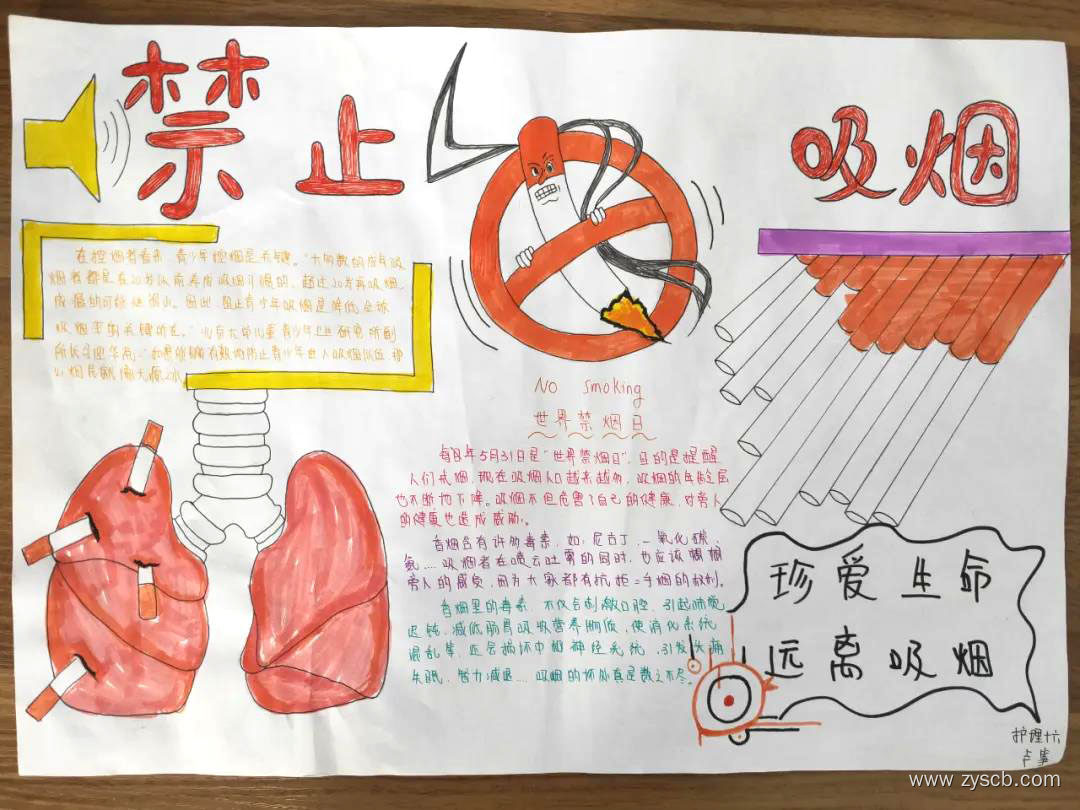 禁止 吸烟
在控烟者看来,青少年控烟是关键。"大多数的成年吸
烟者都是在20岁以前养成吸烟习惯的,超过20岁再吸烟,
成瘾的可能性很小。因此,阻止青少年吸烟是降低全球
吸烟率的关键所在。"北京大学儿童青少年卫生研究所副
所长
NO smoking
世界禁烟日
每年5月31日是"世界禁烟日",目的是提醒
人们戒烟,现在吸烟人口越来越多,吸烟的年龄层
也不断地下降。吸烟不但危害了自己的健康,对旁人
的健康也造成威胁。
香烟含有许多毒素,如:尼古丁、一氧化碳、
氨....吸烟者在喷云吐雾的同时,也应该想想
旁人的感受,因为大家都有抗拒二手烟的权利。
香烟里的毒素,不仅会刺激口腔,引起味觉
迟钝,减低肠胃吸收营养
混乱等,还会损坏中枢神经系统,引发头痛
失眠、智力减退....吸烟的坏处真是数之不尽。
珍爱生命
远离吸烟
护理十六
www.zyscb.com